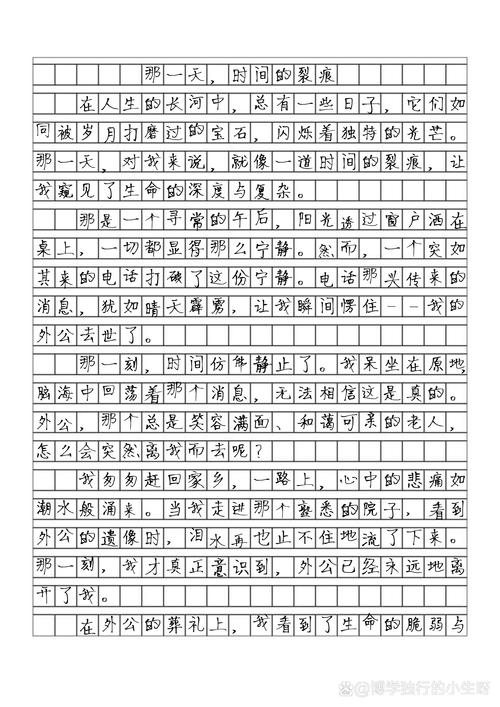 那一天，时间的裂痕
在人生的长河中，总有一些日子，它们如
同被岁月打磨过的宝石，闪烁着独特的光芒。
那一天，对我来说，就像一道时间的裂痕，让
我窥见了生命的深度与复杂。
那是一个寻常的午后，阳光透过窗户洒在
桌上，一切都显得那么宁静。然而，一个突如
其来的电话打破了这份宁静。电话那头传来的
消息，犹如晴天霹雳，让我瞬间愣住--我的
外公去世了。
那一刻，时间仿佛静止了。我呆坐在原地，
脑海中回荡着那个消息，无法相信这是真的。
外公，那个总是笑容满面、和蔼可亲的老人，
怎么会突然离我而去呢？
我匆匆赶回家乡，一路上，心中的悲痛如
潮水般涌来。当我走进那个熟悉的院子，看到
外公的遗像时，泪水再也止不住地流了下来。
那一刻，我才真正意识到，外公已经永远地离
开了我。
在外公的葬礼上，我看到了生命的脆弱与
@博学独行的小生呀